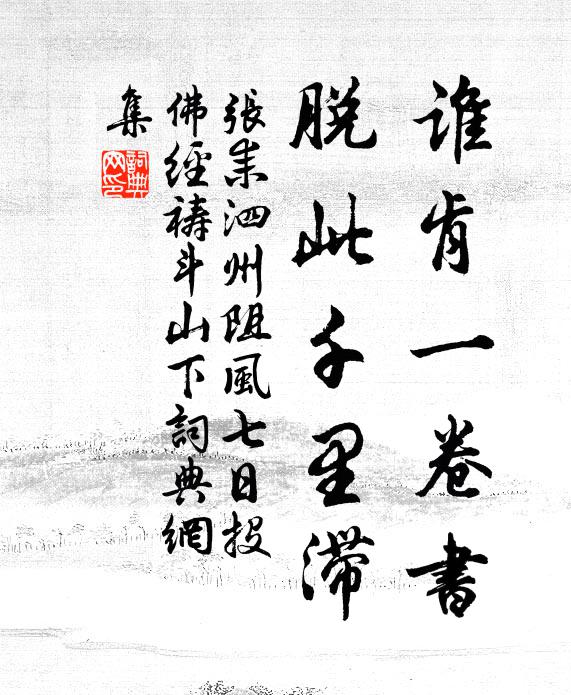 誰肯一卷書
脫此千里滯
張耒泗州阻風七日投
佛經禱斗山下詞典網
集
詞典
网印